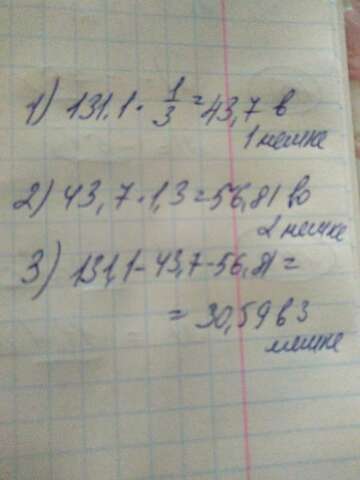 1) 131.1 · 1/3 = 43,7 в
1 мешке
2) 43,7 · 1,3 = 56,81 во
2 мешке
3) 131,1 - 43,7 - 56,81 =
= 30,59 в 3
мешке